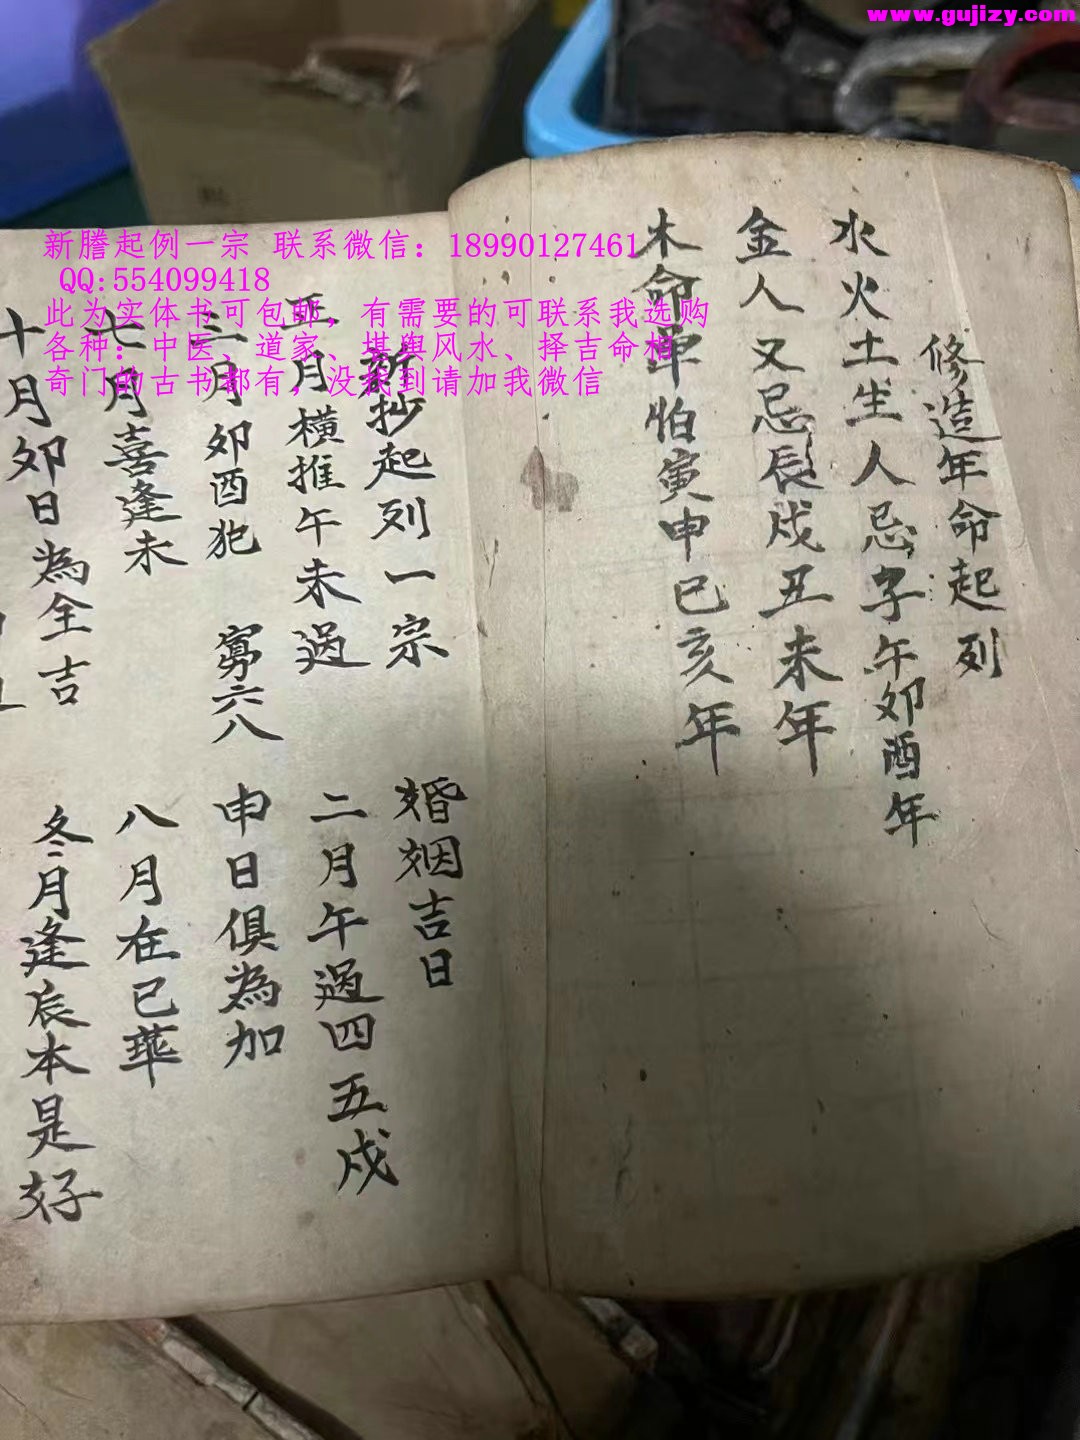 www.gujizy.com
新謄起例一宗 联系微信：18990127461
QQ:554099418
此为实体书可包邮，有需要的可联系我选购
各种：中医、道家、堪舆风水、择吉命相
奇门的古书都有，没找到请加我微信
修造年命起列
水火土生人忌子午卯酉年
金人又忌辰戌丑未年
木命串怕寅申巳亥年
新抄起列一宗 婚姻吉日
正月横推午未過 二月午過四五戌
三月卯酉犯 寡六八 申日俱為加
七月喜逢未 八月在巳
十月卯日為全吉 冬月逢辰本是好